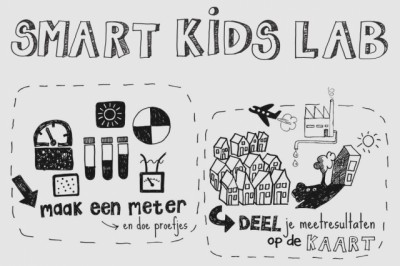 SMART KIDS LAB
maak een meter
en doe proefjes
DEEL je meetresultaten
op de KAART